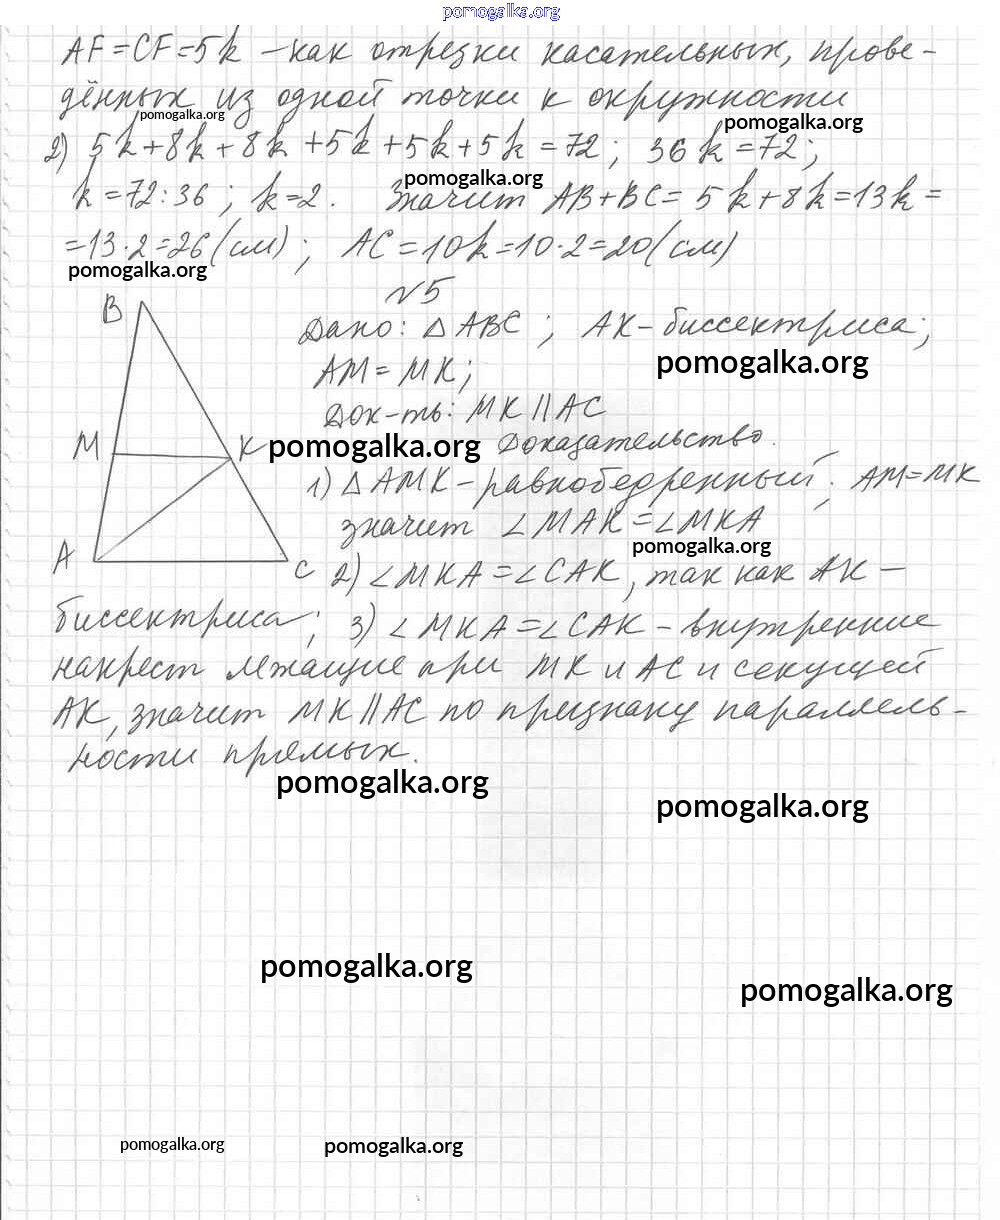 pomogalka.org
AF = CF = 5k – как отрезки касательных, прове-
дённых из одной точки к окружности
pomogalka.org
pomogalka.org
2) 5k + 8k + 8k + 5k + 5k + 5k = 72; 36k = 72;
pomogalka.org
k = 72 : 36; k = 2. Значит AB + BC = 5k + 8k = 13k =
= 13 · 2 = 26 (см); AC = 10k = 10 · 2 = 20 (см)
pomogalka.org
№5
B
Дано: △ ABC; AK – биссектриса;
pomogalka.org
AM = MK;
Док-ть: MK || AC
M
K
pomogalka.org
Доказательство.
1) △ AMK – равнобедренный; AM = MK
значит ∠MAK = ∠MKA
pomogalka.org
A
C
2) ∠MKA = ∠CAK, так как AK –
биссектриса; 3) ∠MKA = ∠CAK – внутренние
накрест лежащие при MK и AC и секущей
AK, значит MK || AC по признаку параллель-
ности прямых.
pomogalka.org
pomogalka.org
pomogalka.org
pomogalka.org
pomogalka.org
pomogalka.org